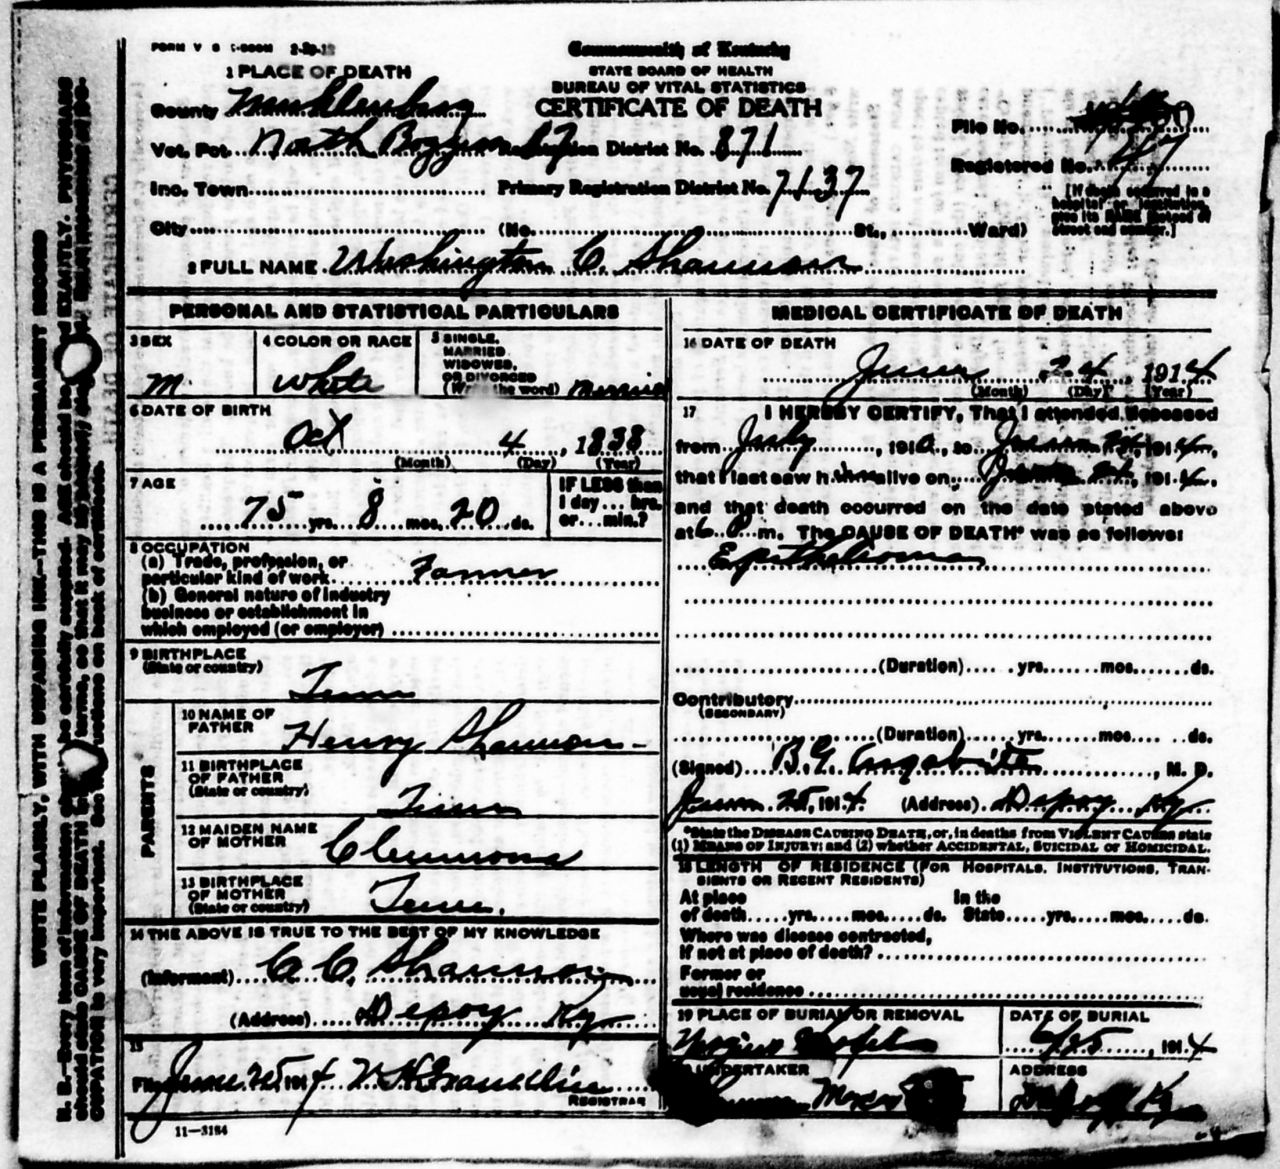 FORM V S 2-20-12
Commonwealth of Kentucky
STATE BOARD OF HEALTH
BUREAU OF VITAL STATISTICS
CERTIFICATE OF DEATH
1 PLACE OF DEATH
County Muhlenberg
Vot. Pct. North Registration District No. 871
File No.
Inc. Town Primary Registration District No. 7137
Registered No. 47
[If death occurred in a hospital or institution, give its NAME instead of street and number.]
City (No. St., Ward)
2 FULL NAME Washington C Shannon
PERSONAL AND STATISTICAL PARTICULARS
3 SEX
M.
4 COLOR OR RACE
White
5 SINGLE,
MARRIED
WIDOWED,
OR DIVORCED
(Write the word) Married
6 DATE OF BIRTH
Oct 4, 1838
(Month) (Day) (Year)
7 AGE
75 yrs. 8 mos. 20 ds.
IF LESS than
1 day ... hrs.
or ... min.?
8 OCCUPATION
(a) Trade, profession, or
particular kind of work Farmer
(b) General nature of industry
business or establishment in
which employed (or employer)
9 BIRTHPLACE
(State or country)
Tenn
PARENTS
10 NAME OF
FATHER
Henry Shannon
11 BIRTHPLACE
OF FATHER
(State or country)
Tenn
12 MAIDEN NAME
OF MOTHER
Clemmons
13 BIRTHPLACE
OF MOTHER
(State or country)
Tenn.
14 THE ABOVE IS TRUE TO THE BEST OF MY KNOWLEDGE
(Informant) C. C. Shannon
(Address) Depoy Ky
15
Filed June 25 1914
REGISTRAR
11—3184
MEDICAL CERTIFICATE OF DEATH
16 DATE OF DEATH
June 24, 1914
(Month) (Day) (Year)
17 I HEREBY CERTIFY, That I attended deceased
from July, 191 , to June 24, 1914,
that I last saw h im alive on June 24, 1914,
and that death occurred on the date stated above
at 6 P. m. The CAUSE OF DEATH* was as follows:
Epithelioma
(Duration) yrs. mos. ds.
Contributory
(SECONDARY)
(Duration) yrs. mos. ds.
(Signed) B.G. Argabrite, M. D.
June 25, 1914. (Address) Depoy Ky
*State the DISEASE CAUSING DEATH, or, in deaths from VIOLENT CAUSES state
(1) MEANS OF INJURY; and (2) whether ACCIDENTAL, SUICIDAL OR HOMICIDAL.
18 LENGTH OF RESIDENCE (FOR HOSPITALS, INSTITUTIONS, TRAN-
SIENTS OR RECENT RESIDENTS)
At place In the
of death yrs. mos. ds. State yrs. mos. ds.
Where was disease contracted,
If not at place of death?
Former or
usual residence
19 PLACE OF BURIAL OR REMOVAL
DATE OF BURIAL
6/25, 1914
UNDERTAKER
ADDRESS
Depoy Ky
WRITE PLAINLY, WITH UNFADING INK—THIS IS A PERMANENT RECORD